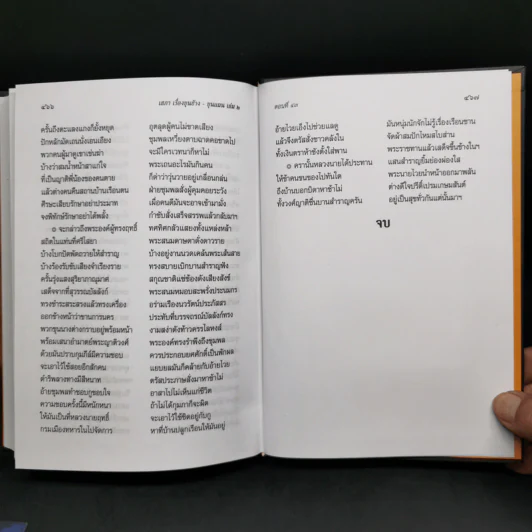 ๔๖๖
เสภา เรื่องขุนช้าง - ขุนแผน เล่ม ๒
ครั้นถึงตะแลงแกงก็ยั้งหยุด
ปักหลักมัดเอนนั่งเอนเอียง
พวกคนผู้มาดูเขาเข่นฆ่า
บ้างว่าสมน้ำหน้าสาแก่ใจ
ที่เป็นญาติพี่น้องของคนตาย
แล้วต่างคนคืนสถานบ้านเรือนตน
ศีรษะเสียบรักษาอย่าประมาท
จงพิทักษ์รักษาอย่าได้พลั้ง
๏ จะกล่าวถึงพระองค์ผู้ทรงฤทธิ์
สถิตในแท่นที่ศรีไสยา
บ้างโบกปัดพัดถวายให้สำราญ
บ้างร้องรับขับเสียงจำเรียงราย
ครั้นรุ่งแสงสุริยาภาณุมาศ
เสด็จจากที่สุวรรณบัลลังก์
ทรงชำระสระสรงแล้วทรงเครื่อง
ออกข้างหน้าว่าขานการนคร
พวกขุนนางต่างกราบอยู่พร้อมหน้า
พร้อมเสนาอำมาตย์พระญาติวงศ์
ด้วยมันปราบกุมภีล์มีความชอบ
จะเอาไว้ใช้สอยอีกสักคน
ดำริพลางทางมีสีหนาท
อ้ายชุมพลทำชอบกูชอบใจ
ความชอบครั้งนี้มีหนักหนา
ให้มันเป็นที่หลวงนายฤทธิ์
กรมเมืองทหารในไปจัดการ
ฤๅผู้คนไม่ขาดเสียง
จะมีใครเวทนาก็หาไม่
พระเถนอะไรมันกินคน
ก็ด่าว่าวุ่นวายอยู่เกลื่อนกล่น
ฝ่ายชุมพลสั่งผู้คุมคอยระวัง
กำชับสั่งเสร็จสรรพแล้วกลับมาฯ
ทศทิศกลัวแสยงทั้งแหล่งหล้า
พระสนมดาษดาดั่งดาวราย
บ้างอยู่งานนวดเคล้นพระเส้นสาย
ทรงสบายเบิกบานสำราญฟัง
อร่ามเรืองนวรัตน์ประภัสสร
ประทับที่บรรจถรณ์บัลลังก์ทรง
พระองค์ทรงรำพึงถึงชุมพล
ควรประกอบยศศักดิ์เป็นพักผล
ตรัสประภาษสั่งมาหาช้าไม่
อาสาไปไม่เห็นแก่ชีวิต
จะเอาไว้ใช้ชิดอยู่กับกู
หาที่บ้านปลูกเรือนให้มันอยู่
ตอนที่ ๔๓
๔๖๗
อ้ายไวยเถิงไปช่วยแลดู
แล้วจึงตรัสสั่งชาวคลังใน
ทั้งเงินตราห้าชั่งตั้งใส่พาน
๏ ครานั้นหลวงนายได้ประทาน
ให้ข้าคนขนของไปทันใด
ถึงบ้านบอกบิดาหาช้าไม่
ทั้งวงศ์ญาติชื่นบานสำราญครัน
มันหนุ่มนักจักไม่รู้เรื่องเรือนชาน
จัดผ้าสมปักไหมสไบส่าน
พระราชทานแล้วเสด็จขึ้นข้างในฯ
แสนสำราญยิ้มย่องผ่องใส
พระนายไวยนำหน้าออกมาพลัน
ต่างดีใจปรีดิ์เปรมเกษมสันต์
อยู่เป็นสุขทั่วกันแต่นั้นมาฯ
จบ